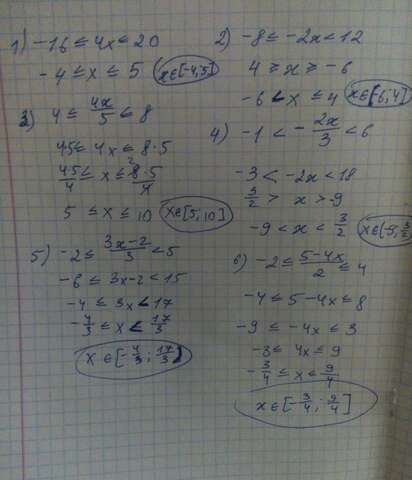 1) -16 ≤ 4x ≤ 20
-4 ≤ x ≤ 5 x∈[-4;5]
2) -8 ≤ -2x < 12
4 ≥ x > -6
-6 < x ≤ 4 x∈(-6;4]
3) 4 ≤ 4x/5 ≤ 8
4·5 ≤ 4x ≤ 8·5
4·5/4 ≤ x ≤ 8·5/4
5 ≤ x ≤ 10 x∈[5;10]
4) -1 < -2x/3 < 6
-3 < -2x < 18
3/2 > x > -9
-9 < x < 3/2
5) -2 ≤ 3x-2/3 < 5
-6 ≤ 3x-2 < 15
-4 ≤ 3x < 17
-4/3 ≤ x < 17/3
x∈[-4/3; 17/3)
6) -2 ≤ 5-4x/2 ≤ 4
-4 ≤ 5-4x ≤ 8
-9 ≤ -4x ≤ 3
-3 ≤ 4x ≤ 9
-3/4 ≤ x ≤ 9/4
x∈[-3/4; 9/4]